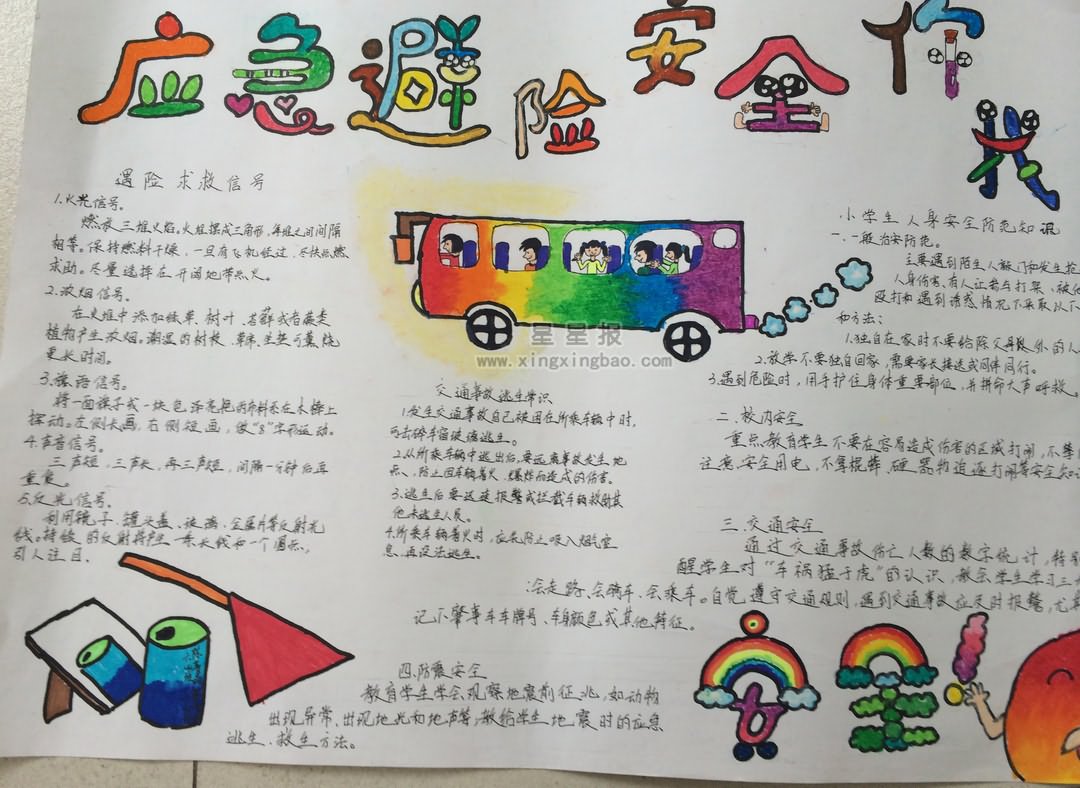 应急避险安全你我
遇险求救信号
1.火光信号。
燃放三堆火焰。火堆摆成三角形,每堆之间间隔
相等。保持燃料干燥,一旦有飞机经过,尽快点燃
求助。尽量选择在开阔地带点火。
2.浓烟信号。
在火堆中添加绿草、树叶、苔藓或者蕨类
植物产生浓烟。潮湿的树枝、草席、坐垫可熏烧
更长时间。
3.旗语信号。
将一面旗子或一块色泽亮艳的布料系在木棒上
挥动。左侧长画,右侧短画,做"8"字形运动。
4.声音信号。
三声短,三声长,再三声短,间隔一分钟后再
重复。
5.反光信号。
利用镜子、罐头盖、玻璃、金属片等反射光
线。持续的反射将产生一条长线和一个圆点,
引人注目。
星星报
www.xingxingbao.com
交通事故逃生常识
1.发生交通事故自己被困在所乘车辆中时,
可击碎车窗玻璃逃生。
2.从所乘车辆中逃出后,要远离事故发生地
点、防止因车辆着火、爆炸而造成的伤害。
3.逃生后要迅速报警或拦截车辆救助其
他未逃生人员。
4.所乘车辆着火时,应先防止吸入烟气窒
息,再设法逃生。
小学生人身安全防范知识
一.一般治安防范。
主要遇到陌生人敲门和发生抢
人身伤害,有人让参与打架、被他
殴打和遇到诱惑情况下采取以下
和方法:
1.独自在家时不要给除父母及外的人
2.放学不要独自回家,需要家长接送或同伴同行。
3.遇到危险时,用手护住身体重要部位,并拼命大声呼救。
二.校内安全
重点教育学生不要在容易造成伤害的区域打闹,不攀
注意安全用电,不拿棍棒、硬器物追逐打闹等安全知
三.交通安全
通过交通事故伤亡人数的数字统计,特别
醒学生对"车祸猛于虎"的认识,教会学生学习三
:会走路、会骑车、会乘车。自觉遵守交通规则,遇到交通事故应及时报警,尤其
记下肇事车车牌号、车身颜色或其他特征。
四.防震安全
教育学生学会观察地震前征兆,如动物
出现异常、出现地光和地声等,教给学生地震时的应急
逃生、救生方法。
安全